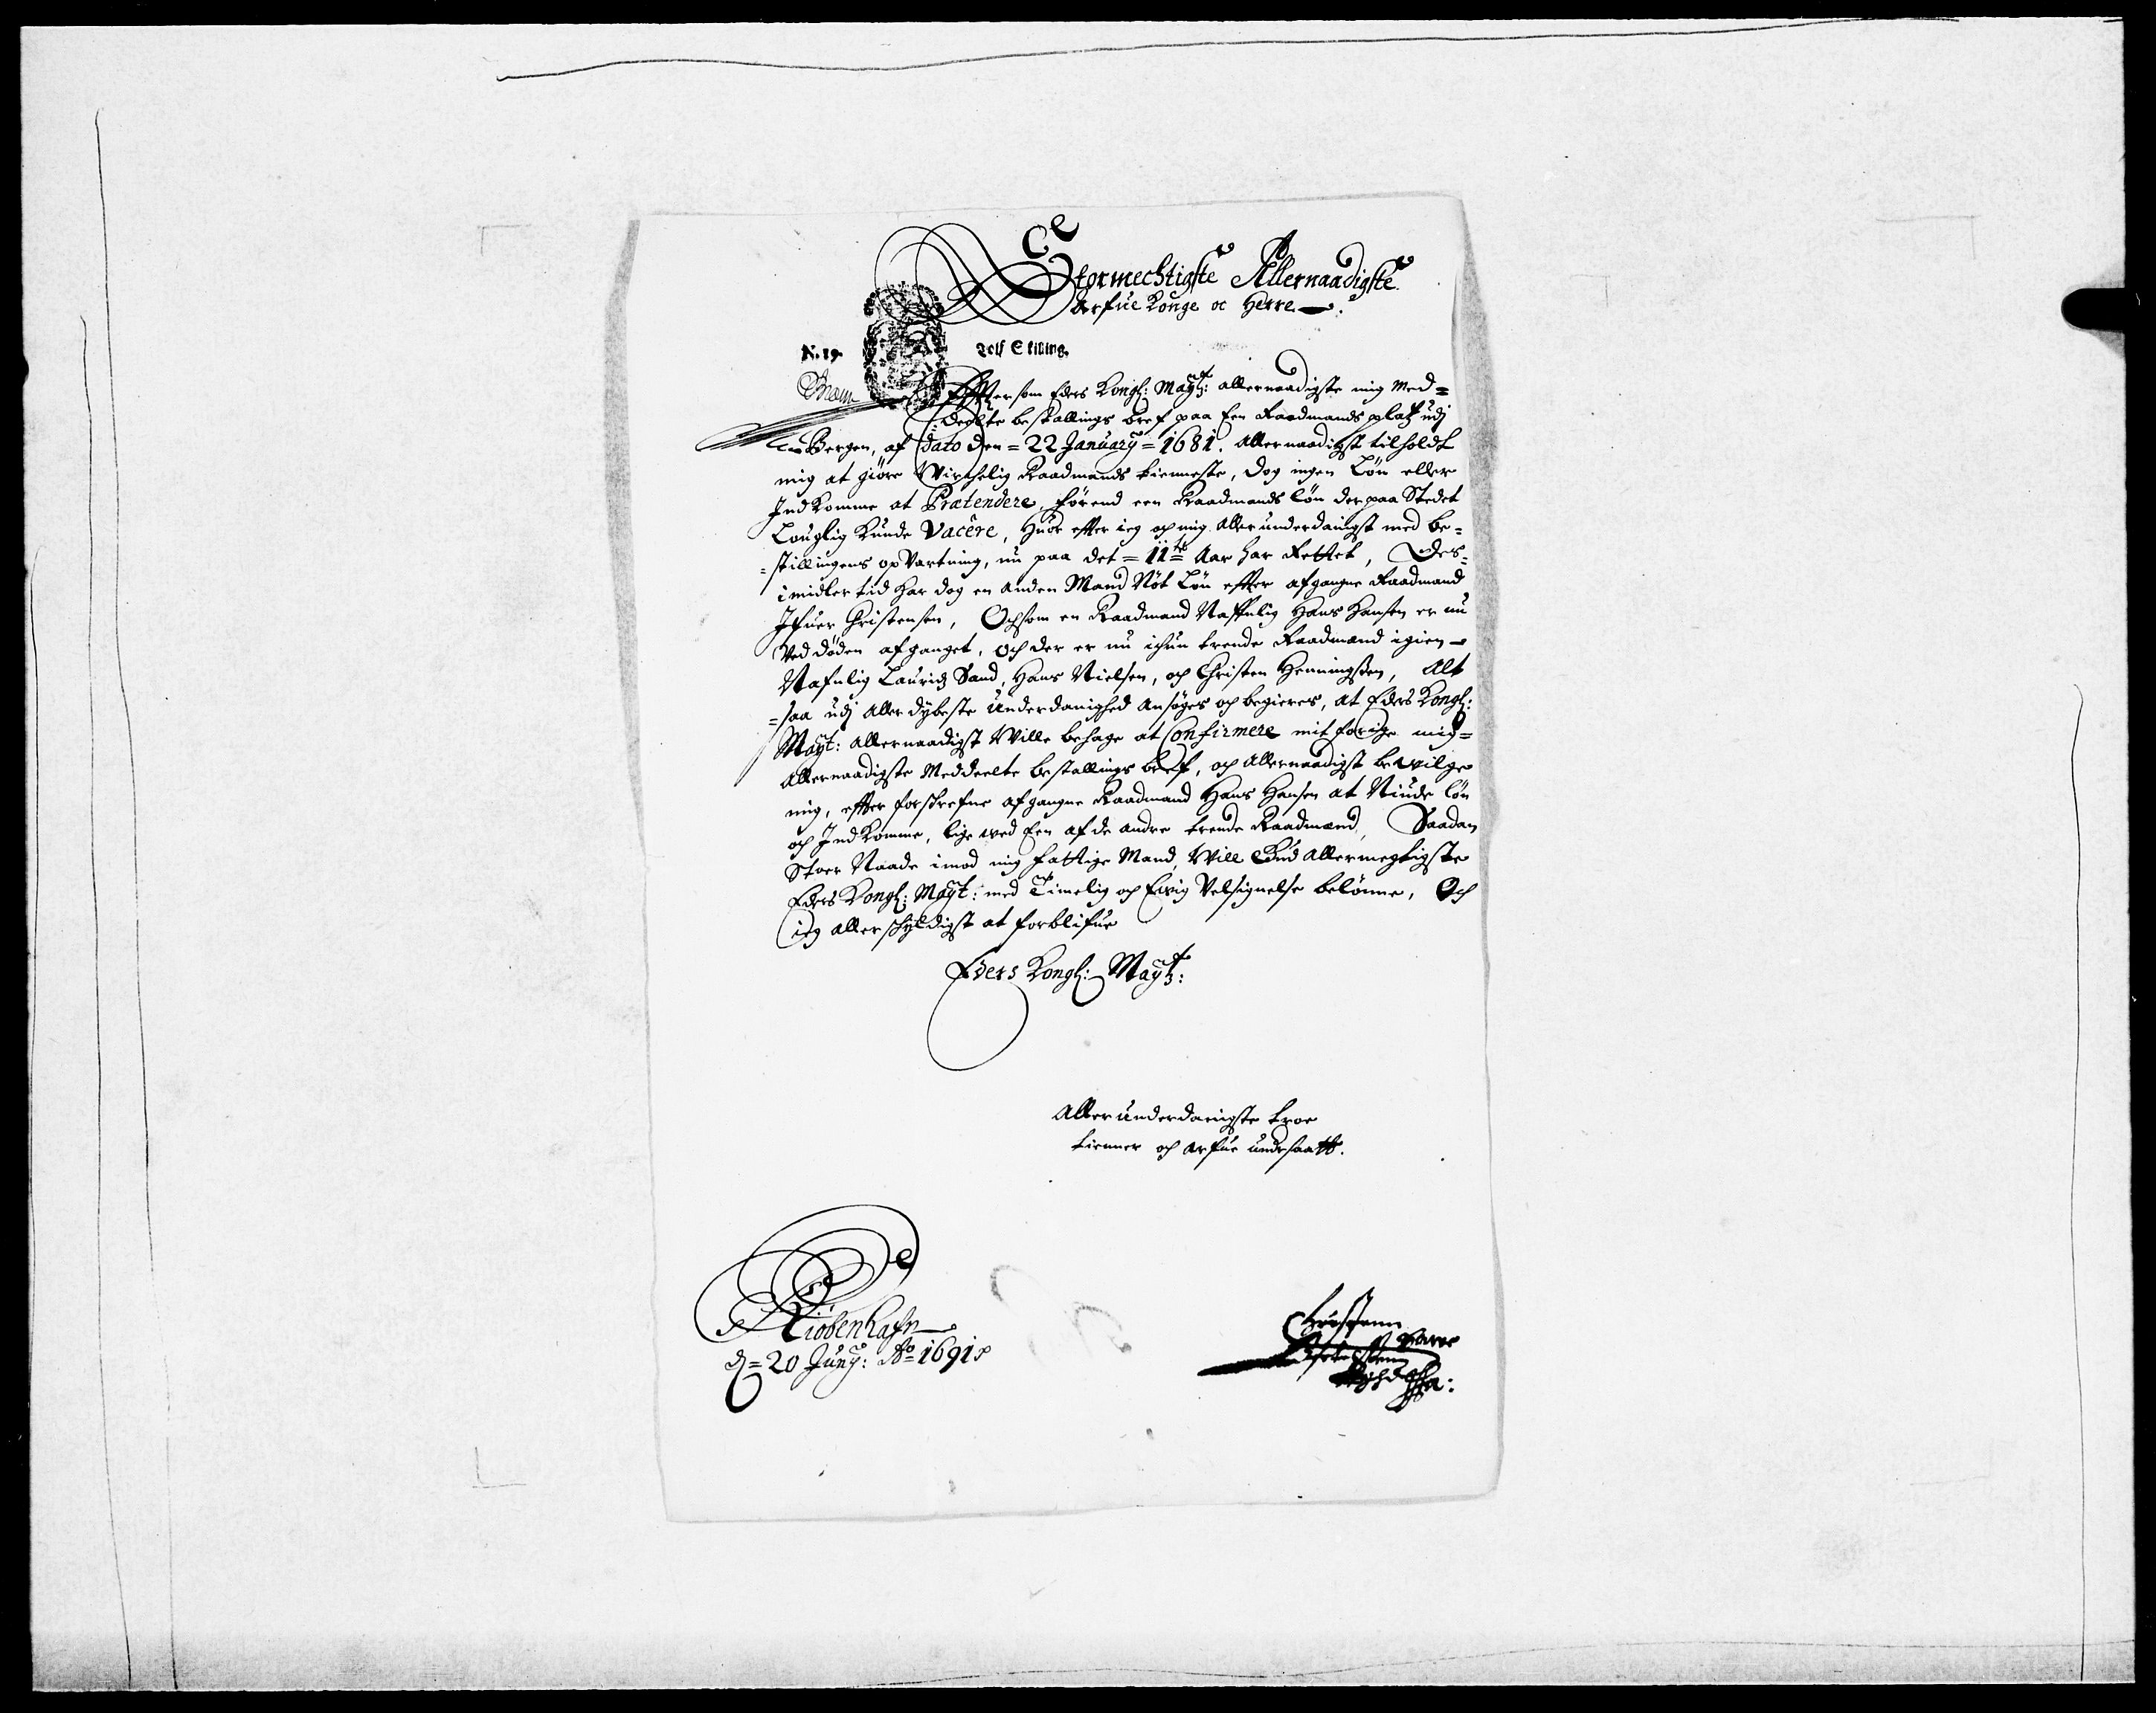 Stormechtigste Allernaadigste
Arfue Konge oc Herre
N. 19. Tolf Skilling.
Effter som Eders Kongl: Mayt: allernaadigste mig med=
deelte bestallings bref paa Een Raadmands platz udj
Bergen, af Dato den = 22 January = 1681. Allernaadigst tilholdt
mig at giöre Wirchelig Raadmands tienneste, dog ingen Lön eller
Ind Komme at Prætendere, förend een Raadmands lön der paa Stedet
Louglig Kunde Vacere, Huor effter ieg och mig Allerunderdanigst med be=
=stillingens op Vartning, nu paa det = 11te Aar har Rettet, Des=
imidlertid har dog en anden Mand Nöt Lön effter afgangne Raadmand
Ifuer Christensen, Och som en Raadmand Naffnlig Hans Hansen er nu
Ved döden afganget, och der er nu ichun trende Raadmænd igien
Nafnlig Lauridz Sand, Hans Nielsen, och Christen Henningsen, Alt
=saa udj Aller dybeste Underdanighed ansöges och begieres, at Eders Kongl:
Mayt: Allernaadigst Wille behage at Confirmere mit forige mig=
Allernaadigste Meddeelte bestallings bref, och Allernaadigst bewilge
mig, effter forschrefne afgangne Raadmand Hans Hansen at Niude lön
och Ind Komme, lige ved Een af de andre trende Raadmænd, Saadan
Stoer Naade imod mig fattige Mand, Will Gud Allermegtigste
Eders Kongl: Mayt: med Timelig och Evig Velsignelse belönne, Och
ieg allerschyldigst at forblifue
Eders Kongl: Mayt:
Allerunderdanigste troe
tienner och Arfue undersaatt.
Kiöbenhafn
d = 20 Juny: Ao 1691